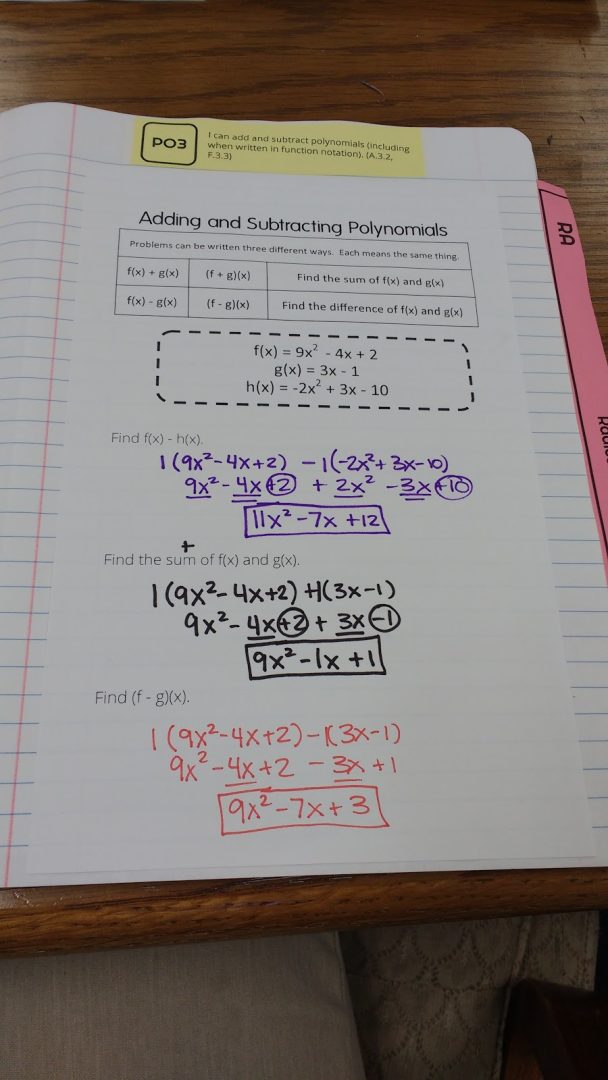 PO3
I can add and subtract polynomials (including
when written in function notation). (A.3.2,
F.3.3)
RA
Adding and Subtracting Polynomials
Problems can be written three different ways. Each means the same thing.
f(x) + g(x) (f + g)(x) Find the sum of f(x) and g(x)
f(x) - g(x) (f - g)(x) Find the difference of f(x) and g(x)
f(x) = 9x² - 4x + 2
g(x) = 3x - 1
h(x) = -2x² + 3x - 10
Find f(x) - h(x).
1(9x²-4x+2) -1(-2x²+3x-10)
9x²-4x+2 + 2x² -3x+10
11x²-7x+12
+
Find the sum of f(x) and g(x).
1(9x²-4x+2) +1(3x-1)
9x²-4x+2+3x-1
9x²-1x+1
Find (f - g)(x).
1(9x²-4x+2)-1(3x-1)
9x²-4x+2 - 3x+1
9x²-7x+3